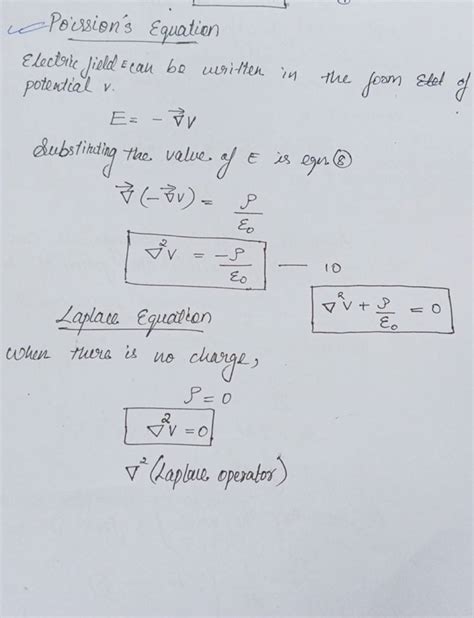 Poission's Equation
Electric field E can be written in the form of
potential V.
E = - ∇⃗V
Substinding the value of E is eqn ⑧
∇⃗ (-∇⃗V) = ρ/ε₀
∇²V = -ρ/ε₀ — 10
∇²V + ρ/ε₀ = 0
Laplace Equation
when there is no charge,
ρ = 0
∇²V = 0
∇² (Laplace operator)